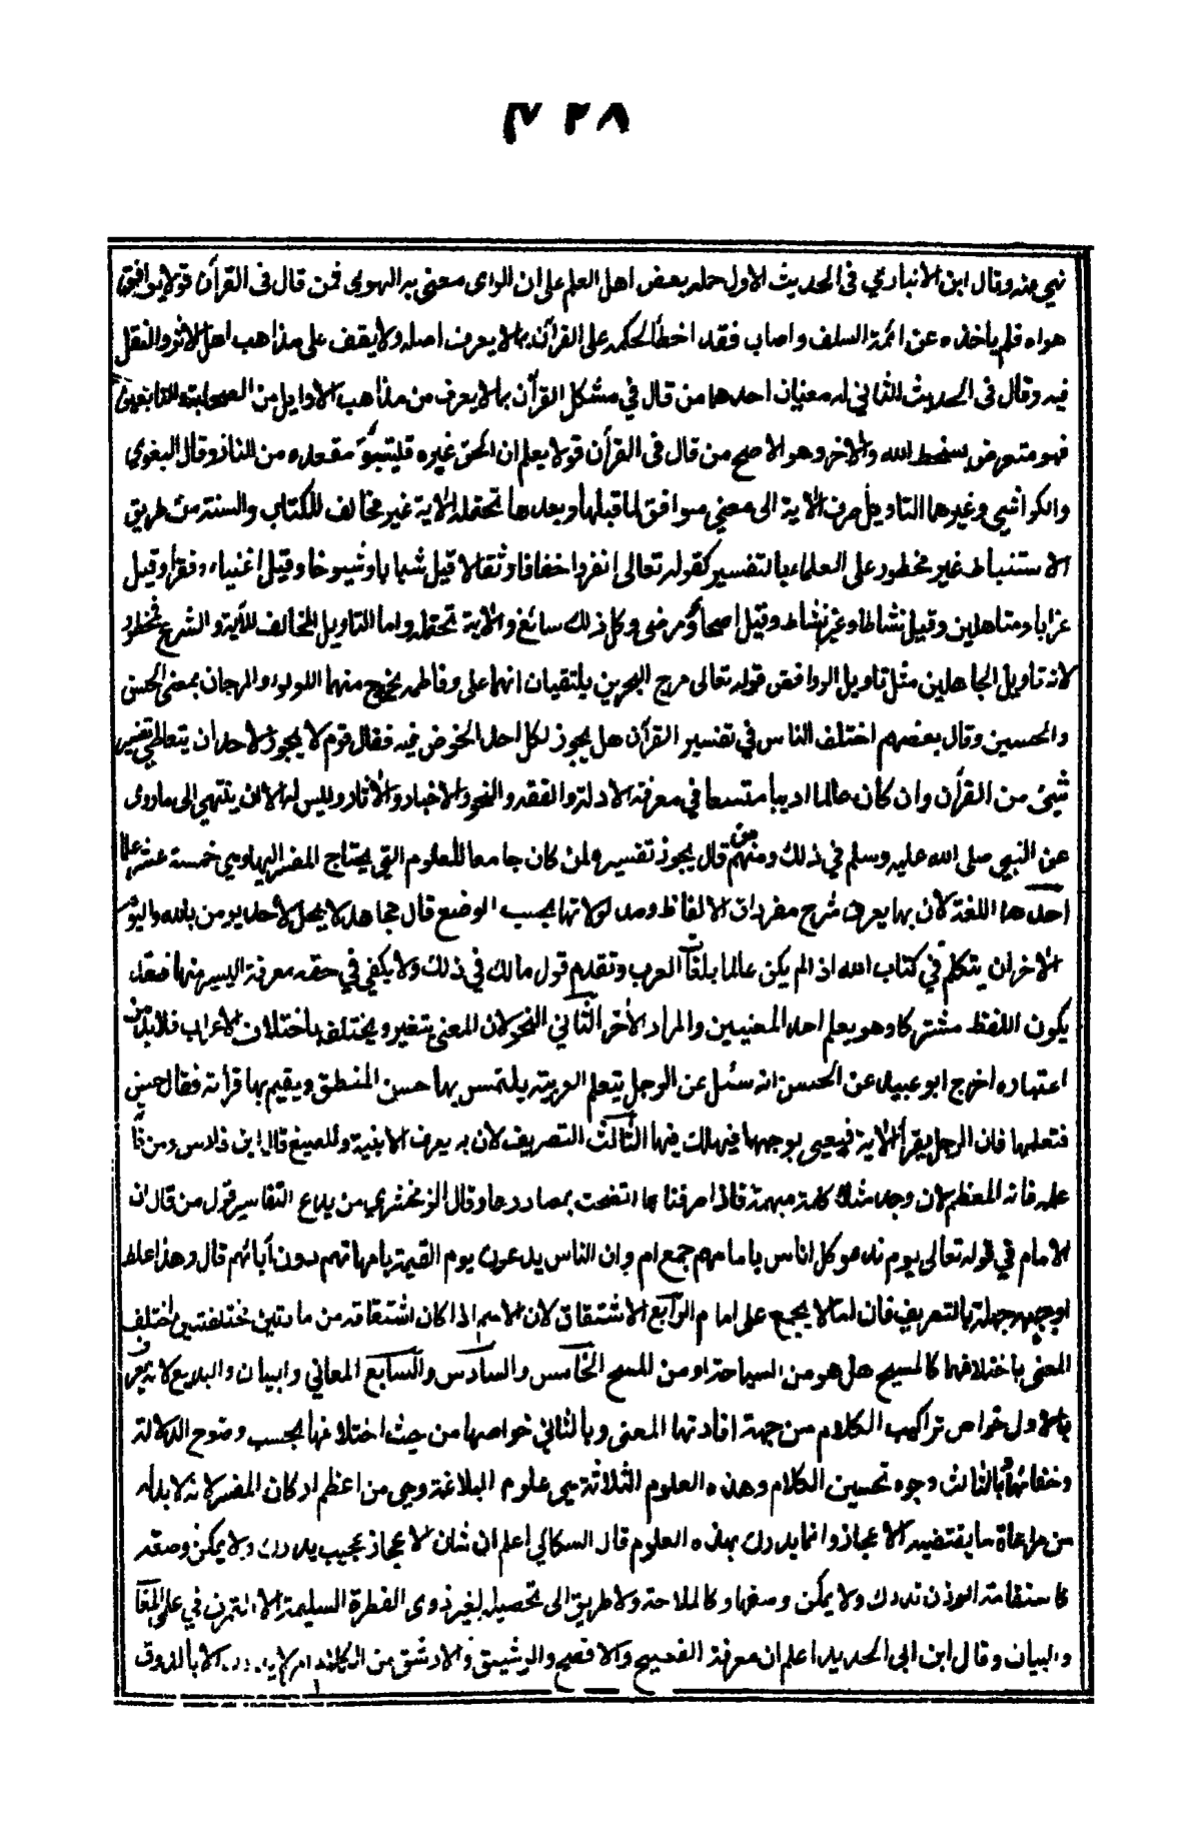 ٤٢٨
نهي عنه وقال ابن الأنباري في الحديث الاول حمله بعض اهل العلم على ان الراى معنى به الهوى فمن قال فى القرآن قولا يوافق
هواه فلم ياخذه عن ائمة السلف واصاب فقد اخطأ لحكمه على القرآن بما لا يعرف اصله ولا يقف على مذاهب اهل الاثر والنقل
فيه وقال فى الحديث الثاني له معنيان احدهما من قال في مشكل القرآن بما لا يعرف من مذاهب الاوايل من الصحابة والتابعين
فهو متعرض بسخط الله والاخر وهو الاصح من قال فى القرآن قولا يعلم ان الحق غيره فليتبوّ مقعده من النار وقال البغوي
والكواشي وغيرهما التاويل صرف الاية الى معنى موافق لما قبلها وبعدها تحتمله الاية غير مخالف للكتاب والسنة من طريق
الاستنباط غير مخطور على العلماء بالتفسير كقوله تعالى انفروا خفافا وثقالا قيل شبابا وشيوخا وقيل اغنياء وفقراء وقيل
عزابا ومتاهلين وقيل نشاطا وغير نشاط وقيل اصحاء ومرضى وكل ذلك سائغ والاية تحتمله واما التاويل المخالف للآية والشرع فمخطور
لانه تاويل الجاهلين مثل تاويل الروافض قوله تعالى مرج البحرين يلتقيان انهما على وفاطمه يخرج منهما اللولوء والمرجان بمعنى الحسن
والحسين وقال بعضهم اختلف الناس في تفسير القرآن هل يجوز لكل احد الخوض فيه فقال قوم لا يجوز لاحد ان يتعاطى تفسير
شيئ من القرآن وان كان عالما اديبا متسعا في معرفة الادلة والفقه والنحو والاخبار والآثار وليس له الا ان ينتهي الى ما روى
عن النبي صلى الله عليه وسلم في ذلك ومنهم من قال يجوز تفسيره لمن كان جامعا للعلوم التي يحتاج المفسر اليها وهي خمسة عشر علما
احدها اللغة لان بها يعرف شرح مفردات الالفاظ ومدلولاتها بحسب الوضع قال مجاهد لا يحل لاحد يومن بالله واليوم
الاخر ان يتكلم في كتاب الله اذا لم يكن عالما بلغات العرب وتقدم قول مالك في ذلك ولا يكفي في حقه معرفة اليسير منها فقد
يكون اللفظ مشتركا وهو يعلم احد المعنيين والمراد الآخر الثاني النحو لان المعنى يتغير ويختلف باختلاف الاعراب فلا بد من
اعتباره اخرج ابو عبيد عن الحسن انه سئل عن الرجل يتعلم العربية يلتمس بها حسن المنطق ويقيم بها قرأته فقال حسن
فتعلمها فان الرجل يقرأ الآية فيعيى بوجهها فيهلك فيها الثالث التصريف لان به يعرف الابنية والصيغ قال ابن فارس ومن فاته
علمه فاته المعظم لان وجد مثلا كلمة مبهمة فاذا صرفناها اتضحت بمصادرها وقال الزمخشري من بدع التفاسير قول من قال ان
الامام في قوله تعالى يوم ندعو كل اناس بامامهم جمع ام وان الناس يدعون يوم القيمة بامهاتهم دون آبائهم قال وهذا غلط
اوجبه جهله بالتصريف فان اما لا يجمع على امام الرابع الاشتقاق لان الاسم اذا كان اشتقاقه من مادتين مختلفتين اختلف
المعنى باختلافهما كالمسيح هل هو من السياحة او من المسح الخامس والسادس والسابع المعاني والبيان والبديع لانه يعرف
بالاول خواص تراكيب الكلام من جهة افادتها المعنى وبالثاني خواصها من حيث اختلافها بحسب وضوح الدلالة
وخفائها وبالثالث وجوه تحسين الكلام وهذه العلوم الثلاثة هي علوم البلاغة وهي من اعظم اركان المفسر لانه لا بد له
من مراعاة ما يقتضيه الاعجاز وانما يدرك بهذه العلوم قال السكاكي اعلم ان شان الاعجاز عجيب يدرك ولا يمكن وصفه
كاستقامة الوزن تدرك ولا يمكن وصفها وكالملاحة ولا طريق الى تحصيله لغير ذوى الفطرة السليمة الا التمرن في علمي المعاني
والبيان وقال ابن ابى الحديد اعلم ان معرفة الفصيح والافصح والرشيق والارشق من الكلام امر لا يدرك الا بالذوق